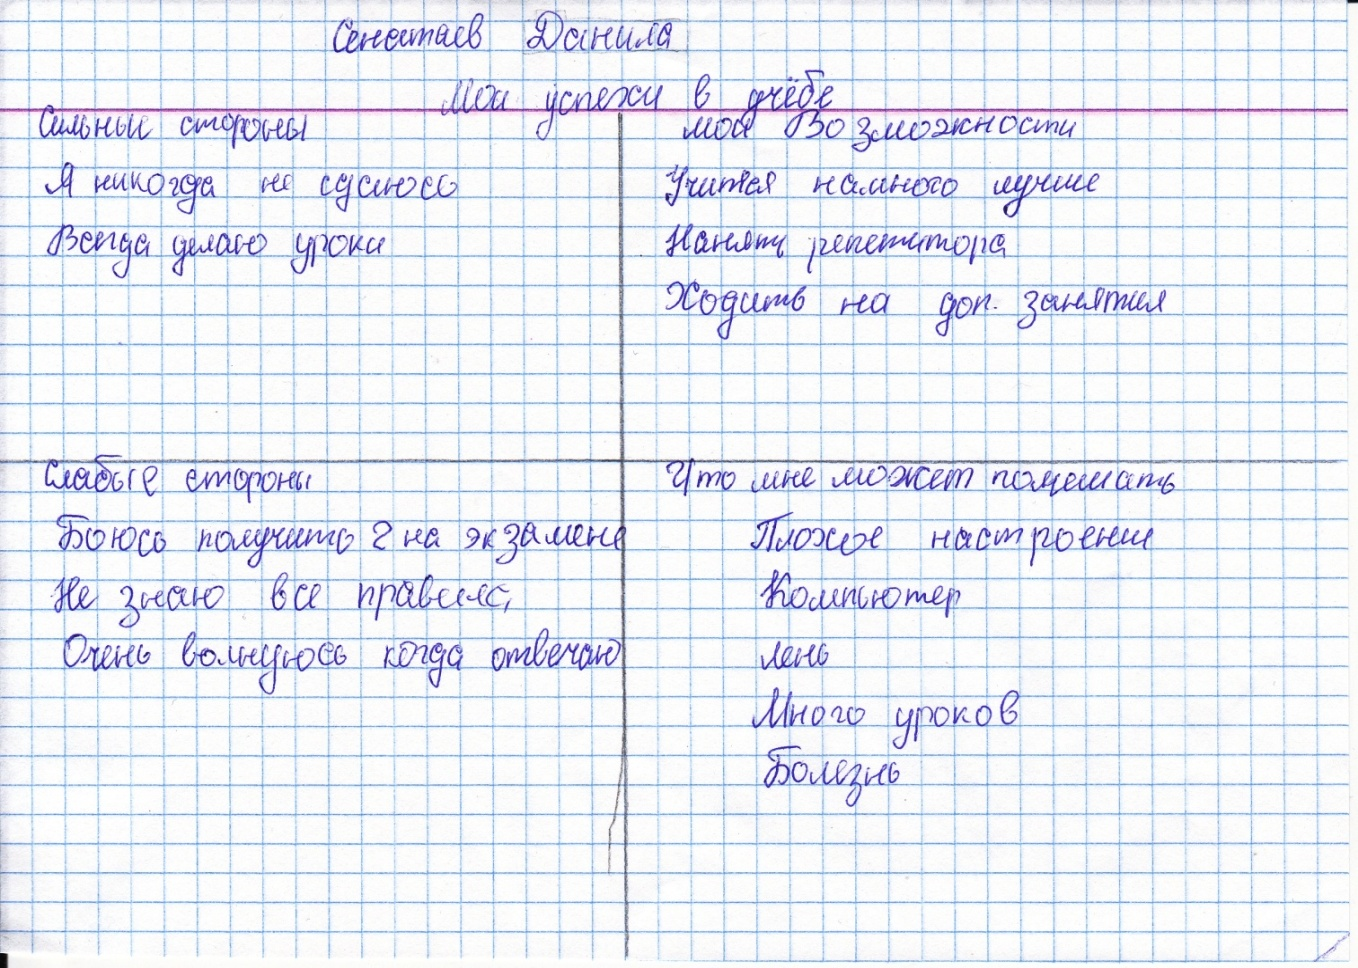 Сенатаев Данила
Мои успехи в учёбе
Сильные стороны
Я никогда не сдаюсь
Всегда делаю уроки
мои Возможности
Учится намного лучше
Нанять репетитора
Ходить на доп. занятия
Слабые стороны
Боюсь получить 2 на экзамене
Не знаю все правила,
Очень волнуюсь когда отвечаю
Что мне может помешать
Плохое настроение
Компьютер
лень
Много уроков
Болезнь